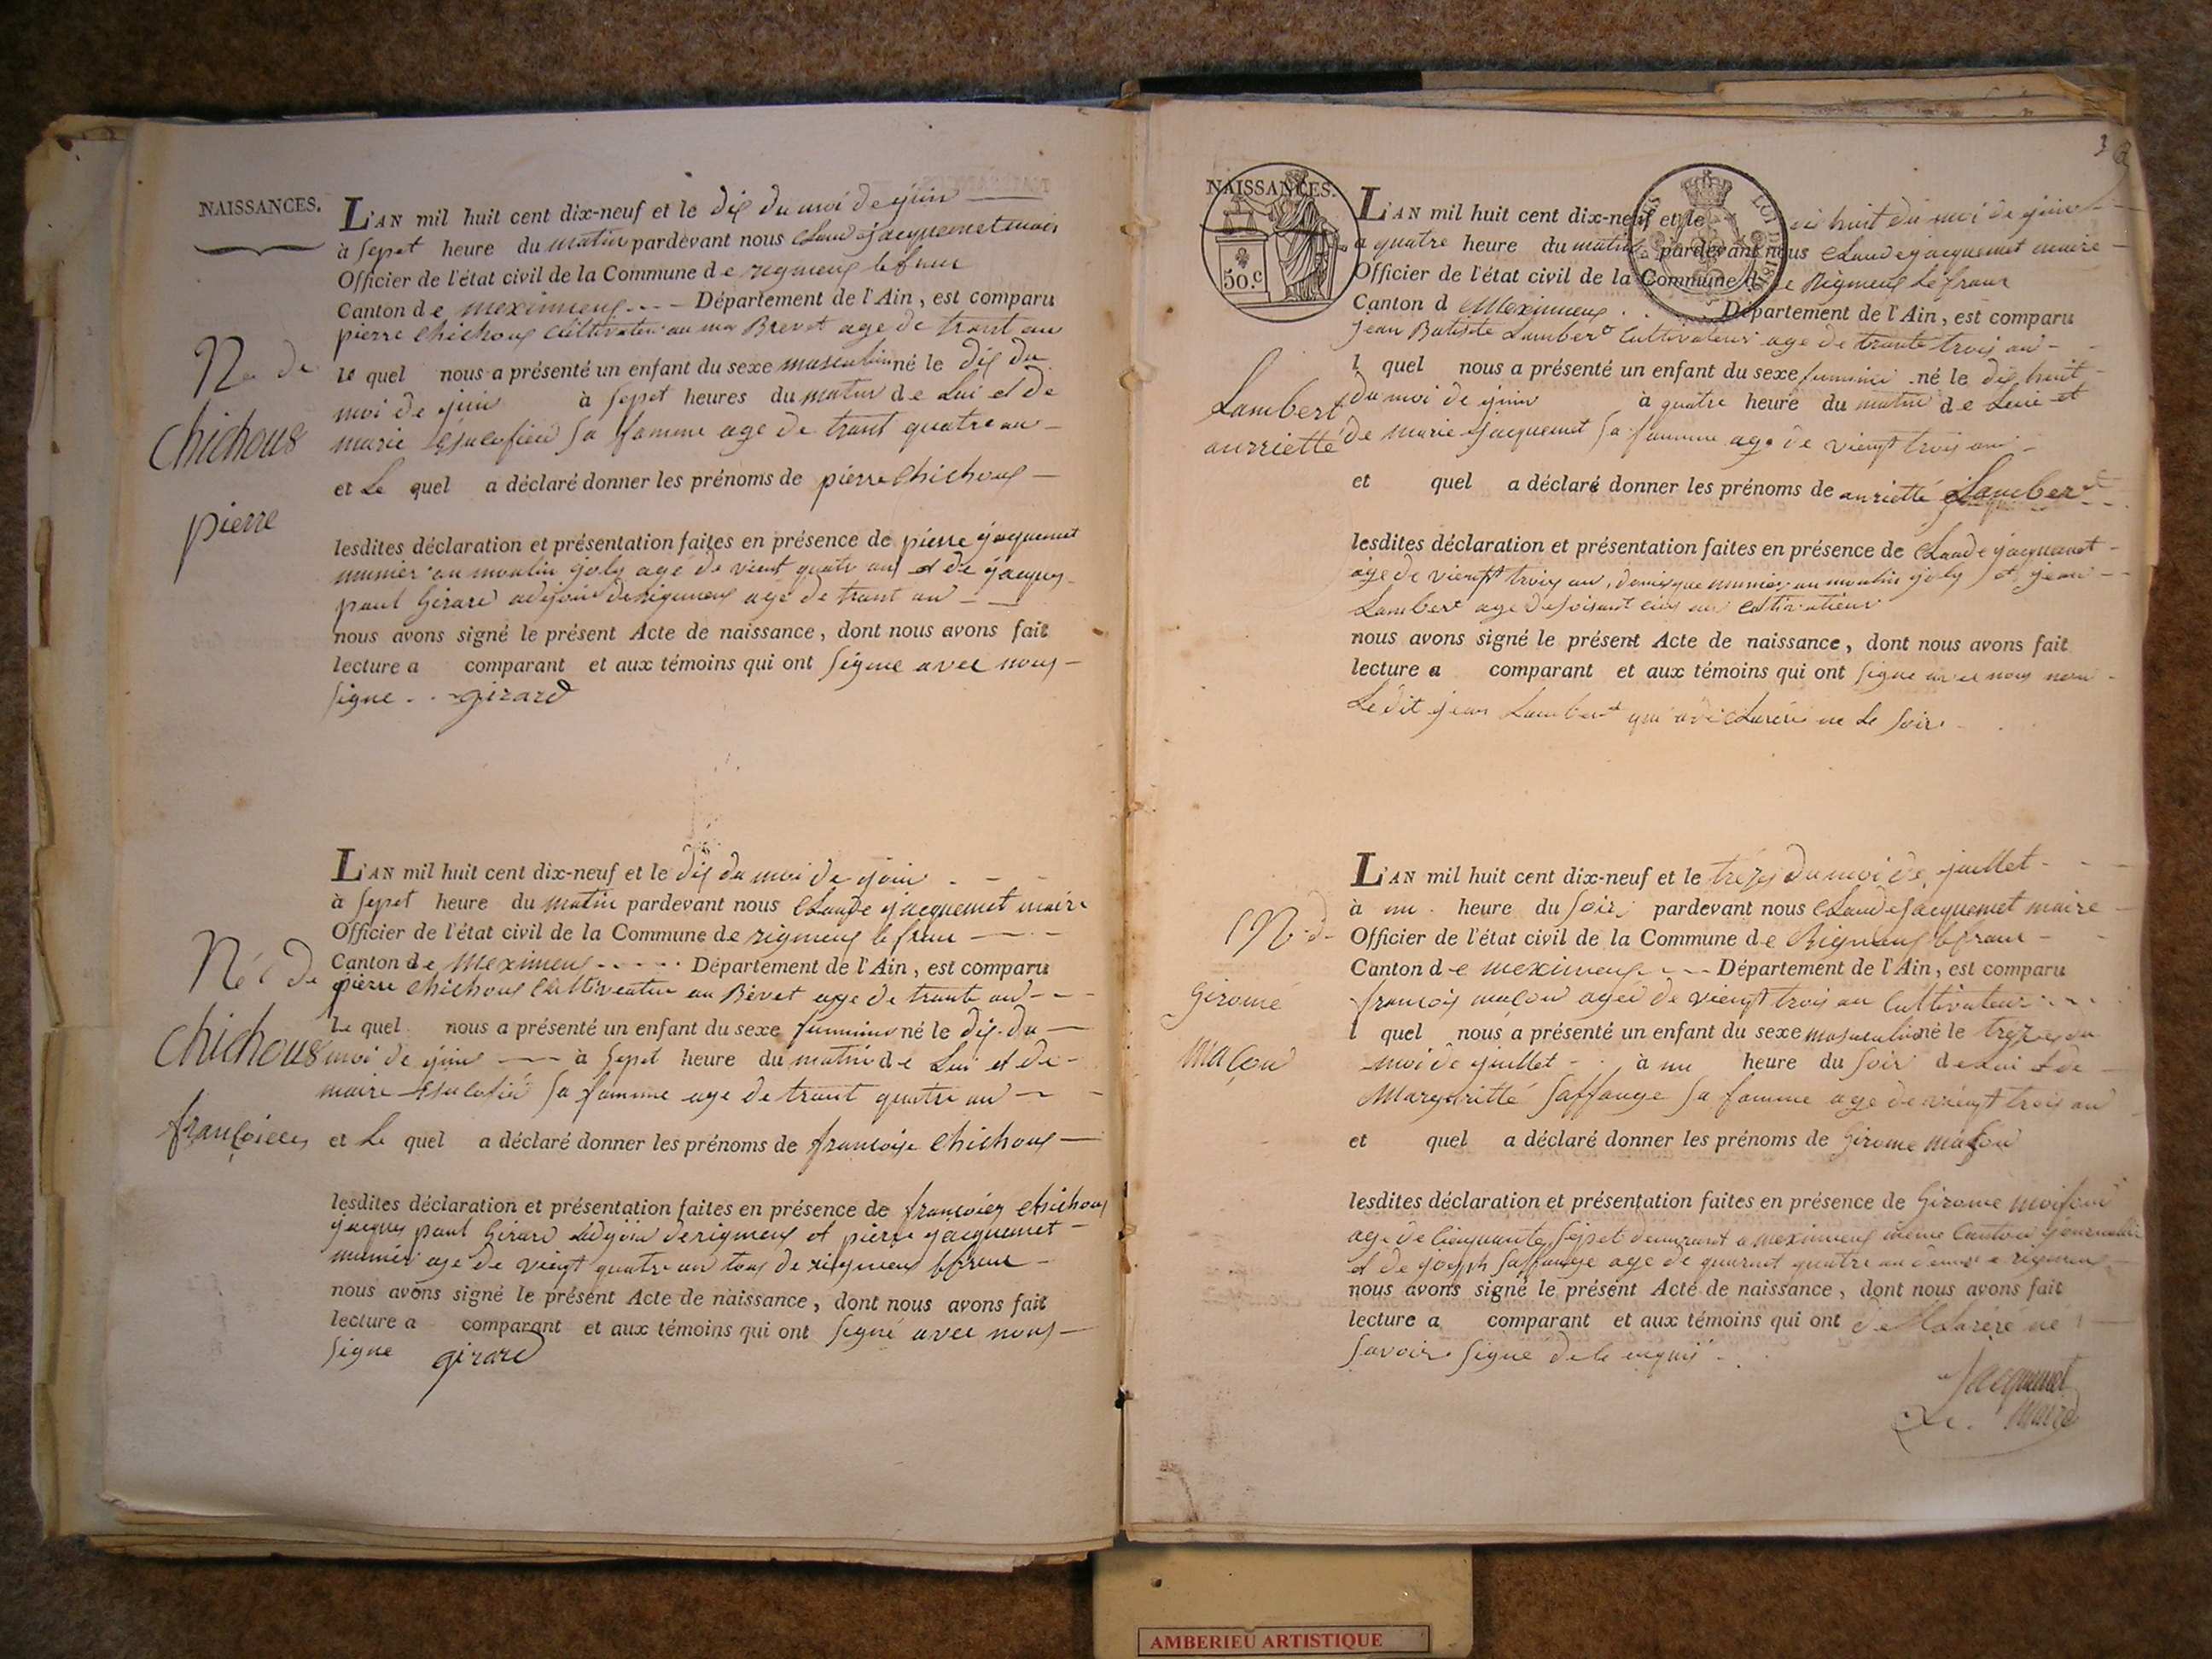 NAISSANCES.
L'AN mil huit cent dix-neuf et le dix du moi de juin
à sepet heure du matin pardevant nous Claude jacquemet maire
Officier de l'état civil de la Commune de rigneux le franc
Canton de meximieux Département de l'Ain, est comparu
pierre chichoux cultivateur au Brevet age de trant an
Né de
chichoux
pierre
le quel nous a présenté un enfant du sexe masculin né le dix du
moi de juin à sepet heures du matin de Lui et de
marie sa famme age de trant quatre an
et Le quel a déclaré donner les prénoms de pierre chichoux
lesdites déclaration et présentation faites en présence de pierre jacquemet
munier au moulin joly age de vient quatr an et de jacques
paul Girard adejoin de rigneux age de trant an
nous avons signé le présent Acte de naissance, dont nous avons fait
lecture a comparant et aux témoins qui ont signe avec nous
signe girard
L'AN mil huit cent dix-neuf et le dix du moi de join
à sepet heure du matin pardevant nous Claude jacquemet maire
Officier de l'état civil de la Commune de rigneux le franc
Canton de meximieux Département de l'Ain, est comparu
pierre chichoux cultiveateur au Bévet age de trante an
Né de
chichoux
françoices
Le quel nous a présenté un enfant du sexe feminin né le dix du
moi de juin à sepet heure du matin de Lui et de
maire sa famme age de trant quatre an
et Le quel a déclaré donner les prénoms de francoise chichoux
lesdites déclaration et présentation faites en présence de francoies chichoux
jacques paul Girard adejoin de rigneux et pierre jacquemet
munier age de vieigt quatre an tous de rigneux le franc
nous avons signé le présent Acte de naissance, dont nous avons fait
lecture a comparant et aux témoins qui ont signé avec nous
signe girard
3
NAISSANCES.
50.c
LOI DE
L'AN mil huit cent dix-neuf et le huit du moi de juin
a quatre heure du matin pardevant nous Claude jacquemet maire
Officier de l'état civil de la Commune de Rigneux Le franc
Canton d Meximieux Département de l'Ain, est comparu
jean Batiste Lambert Cultivateur age de trante trois an
Lambert
anrietté
l quel nous a présenté un enfant du sexe feminin né le dix huit
du moi de juin à quatre heure du matin de Lui et
de marie jacquemet sa famme age de vieingt trois an
et quel a déclaré donner les prénoms de anrietté Lambert
lesdites déclaration et présentation faites en présence de Claude jacquemet
age de vieingt trois an, domisque munier au moulin joly et jean
Lambert age de soisant cinq an cultivateur
nous avons signé le présent Acte de naissance, dont nous avons fait
lecture a comparant et aux témoins qui ont signe avec nous non
Le dit jean Lambert qui a déclaréré ne Le soir
L'AN mil huit cent dix-neuf et le trézes du moi de juillet
à un heure du soir pardevant nous Claude Jacquemet maire
Officier de l'état civil de la Commune de Rigneux le franc
Canton de meximieux Département de l'Ain, est comparu
francois maçon ageé de vieingt trois an Cultivateur
N. d
Giromé
maçon
l quel nous a présenté un enfant du sexe masculin né le trezes du
moi de juillet à un heure du soir de Lui et de
Margueritté Saffange sa famme age de vieingt trois an
et quel a déclaré donner les prénoms de Girome maçon
lesdites déclaration et présentation faites en présence de Girome
age de cinquante sepet demurant a meximieux même Canton journalier
et de joseph saffange age de quarant quatre an a rigneux
nous avons signé le présent Acte de naissance, dont nous avons fait
lecture a comparant et aux témoins qui ont déClaréré ne
savoir signé de le requis
Jacquemet
Le Maire
AMBERIEU ARTISTIQUE